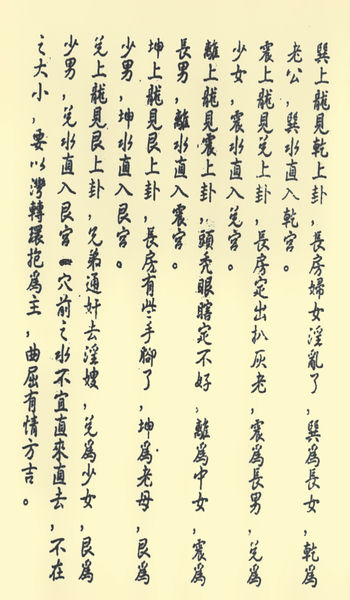 巽上龍見乾上卦，長房婦女淫亂了，巽為長女，乾為
老公，巽水直入乾宮。
震上龍見兌上卦，長房定出扒灰老，震為長男，兌為
少女，震水直入兌宮。
離上龍見震上卦，頭禿眼瞎定不好，離為中女，震為
長男，離水直入震宮。
坤上龍見艮上卦，長房有些手腳了，坤為老母，艮為
少男，坤水直入艮宮。
兌上龍見艮上卦，兄弟通奸去淫嫂，兌為少女，艮為
少男，兌水直入艮宮一穴前之水不宜直來直去，不在
之大小，要以灣轉環抱為主，曲屈有情方吉。